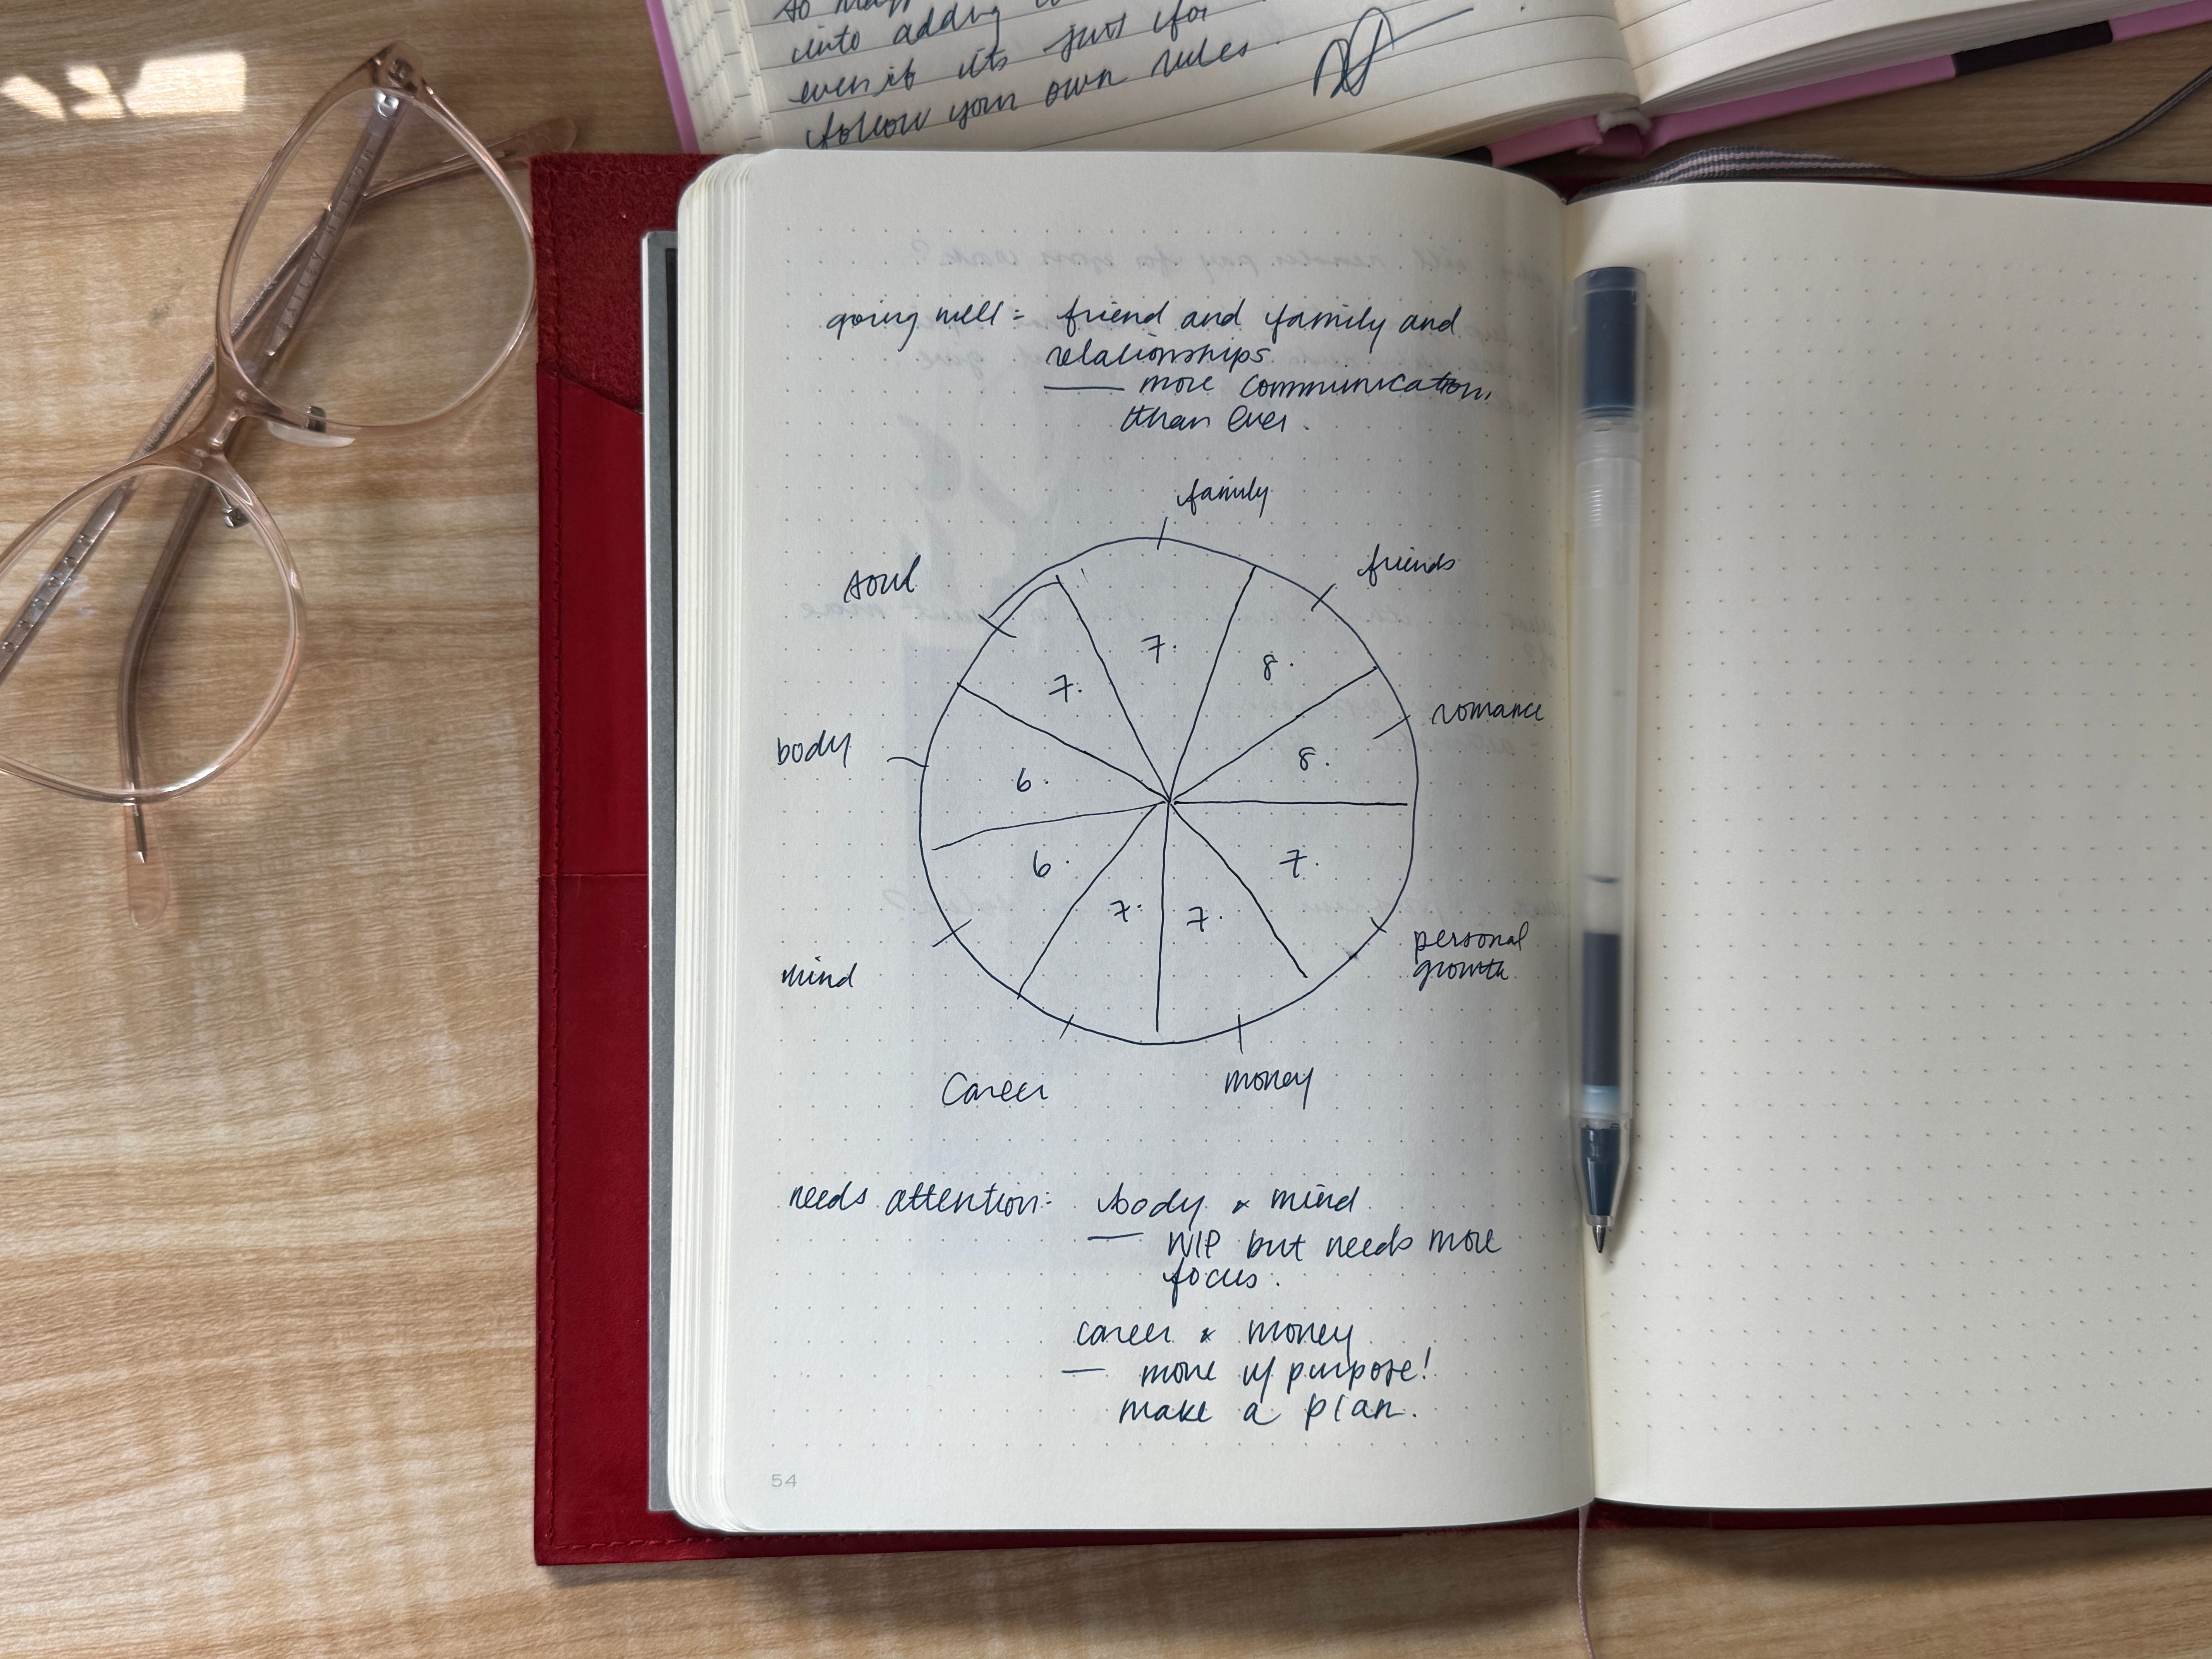 into adding
even if its just for
follow your own rules.
going well: friend and family and
relationships
— more communication,
than ever.
family
friends
soul
romance
body
7.
8.
7.
8.
6.
7.
6.
7.
7.
personal
growth
mind
career
money
needs attention: body & mind
— WIP but needs more
focus.
career & money
— move w/ purpose!
make a plan.
54